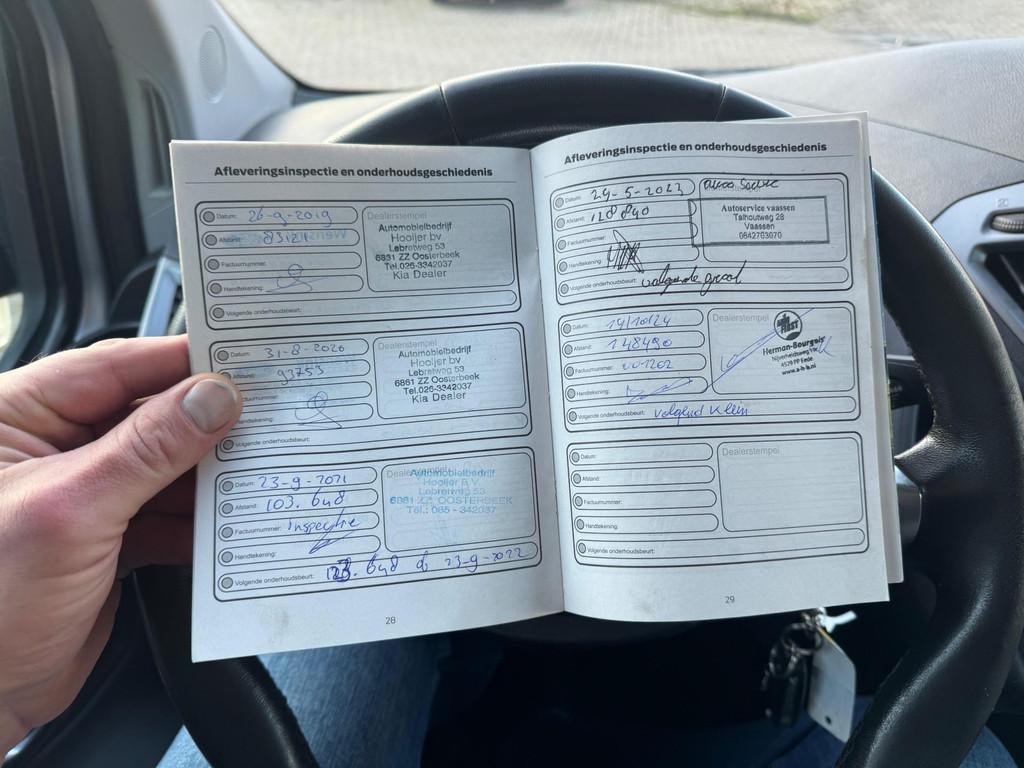 Afleveringsinspectie en onderhoudsgeschiedenis
Datum: 26-9-2019
Afstand: 83121
Factuurnummer:
Handtekening:
Volgende onderhoudsbeurt:
Dealerstempel
Automobielbedrijf
Hooijer bv
Lebretweg 53
6831 ZZ Oosterbeek
Tel.026-3342037
Kia Dealer
Datum: 31-8-2020
Afstand: 93753
Factuurnummer:
Handtekening:
Volgende onderhoudsbeurt:
Dealerstempel
Automobielbedrijf
Hooijer bv
Lebretweg 53
6861 ZZ Oosterbeek
Tel.026-3342037
Kia Dealer
Datum: 23-9-2021
Afstand: 103.648
Factuurnummer: Inspectie
Handtekening:
Volgende onderhoudsbeurt: 123.648 of 23-9-2022
Dealerstempel
Automobielbedrijf
Hooijer B.V.
Lebretweg 53
6861 ZZ OOSTERBEEK
Tel.: 085 - 342037
28
Afleveringsinspectie en onderhoudsgeschiedenis
Datum: 24-5-2023
Afstand: 128840
Factuurnummer:
Handtekening:
Volgende onderhoudsbeurt: volgende groot
Autoservice vaassen
Talhoutweg 28
Vaassen
0642703070
Datum: 14/10/24
Afstand: 148490
Factuurnummer: 001202
Handtekening:
Volgende onderhoudsbeurt: volgend klein
Dealerstempel
FIRST
Herman-Bourgois
Nijverheidsweg
4529 PP Eede
www.a-h-b.nl
Datum:
Afstand:
Factuurnummer:
Handtekening:
Volgende onderhoudsbeurt:
Dealerstempel
29